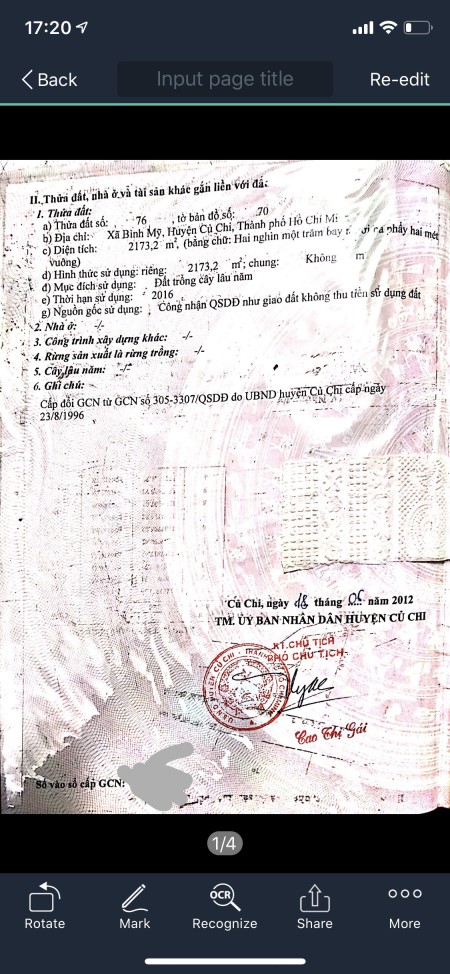 17:20
Back
Input page title
Re-edit
II. Thửa đất, nhà ở và tài sản khác gắn liền với đất:
1. Thửa đất:
a) Thửa đất số: 76 , tờ bản đồ số: 70
b) Địa chỉ: Xã Bình Mỹ, Huyện Củ Chi, Thành phố Hồ Chí Mi
c) Diện tích: 2173,2 m², (bằng chữ: Hai nghìn một trăm bảy phẩy hai mét
vuông)
d) Hình thức sử dụng: riêng: 2173,2 m²; chung: Không m
đ) Mục đích sử dụng: Đất trồng cây lâu năm
e) Thời hạn sử dụng: 2016
g) Nguồn gốc sử dụng: Công nhận QSDĐ như giao đất không thu tiền sử dụng đất
2. Nhà ở: -/-
3. Công trình xây dựng khác: -/-
4. Rừng sản xuất là rừng trồng: -/-
5. Cây lâu năm: -/-
6. Ghi chú:
Cấp đổi GCN từ GCN số 305-3307/QSDĐ do UBND huyện Củ Chi cấp ngày
23/8/1996
Củ Chi, ngày tháng năm 2012
TM. ỦY BAN NHÂN DÂN HUYỆN CỦ CHI
KT.CHỦ TỊCH
PHÓ CHỦ TỊCH
Cao Thị Gái
Số vào sổ cấp GCN:
1/4
Rotate
Mark
OCR
Recognize
Share
More